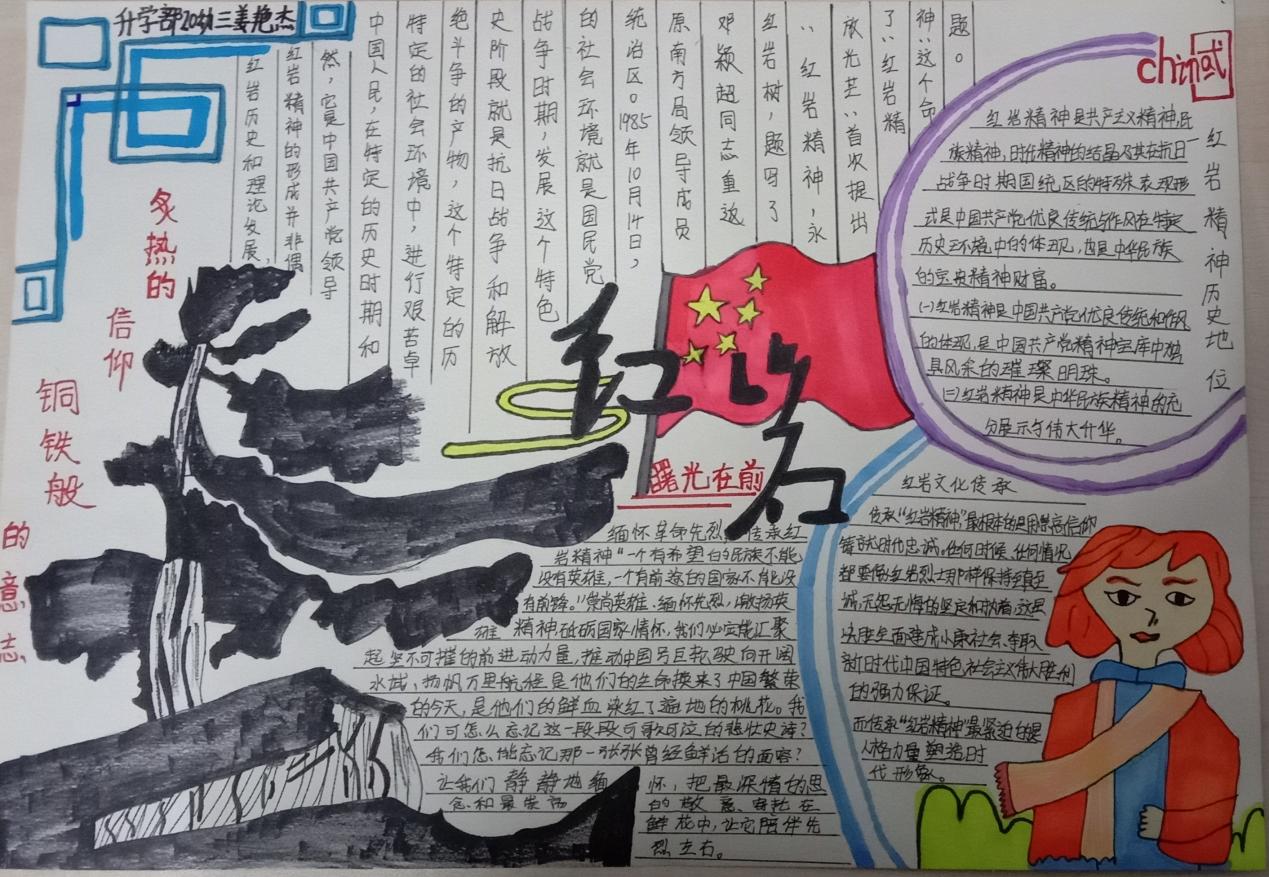 升学部20幼三姜艳杰
炙热的
信仰
铜铁般
的意志
红岩历史和理论发展，
红岩精神的形成并非偶
然，它是中国共产党领导
中国人民，在特定的历史时期和
特定的社会环境中，进行艰苦卓
绝斗争的产物，这个特定的历
史阶段就是抗日战争和解放
战争时期，发展这个特色
的社会环境就是国民党
统治区。1985年10月14日，
原南方局领导成员
邓颖超同志重返
红岩树，题写了
、、红岩精神，永
放光芒、、首次提出
了、、红岩精
神、、这个命
题。
红岩
曙光在前
china
红岩精神历史地位
红岩精神是共产主义精神,民
族精神，时代精神的结晶及其在抗日
战争时期国统区的特殊表现形
式是中国共产党优良传统与作风在特定
历史环境中的体现，也是中华民族
的宝贵精神财富。
(一)红岩精神是中国共产党优良传统和作风
的体现，是中国共产党精神宝库中独
具风采的璀璨明珠。
(二)红岩精神是中华民族精神的充
分展示与伟大升华。
缅怀革命先烈，传承红
岩精神“一个有希望的民族不能
没有英雄，一个有前途的国家不能没
有前锋。”崇尚英雄、缅怀先烈，激扬英
雄精神，砥砺国家情怀，我们必定能汇聚
起坚不可摧的前进动力量，推动中国号巨轮驶向开阔
水域，扬帆万里航程是他们的生命换来了中国繁荣
的今天，是他们的鲜血染红了遍地的桃花。我
们可怎么忘记这一段段可歌可泣的悲壮史诗？
我们怎能忘记那一张张曾经鲜活的面容？
让我们静静地缅怀，把最深情的思
念和最崇高的敬意，寄托在
鲜花中，让它陪伴先
烈立右。
红岩文化传承
传承“红岩精神”最根本的是用崇高信仰
铸就时代忠诚。任何时候、任何情况
都要像红岩烈士那样保持对真理
诚，无怨无悔的坚定和执着，这是
决胜全面建成小康社会、夺取
新时代中国特色社会主义伟大胜利
的强力保证。
而传承“红岩精神”最紧迫的是
人格力量塑造时
代形象。